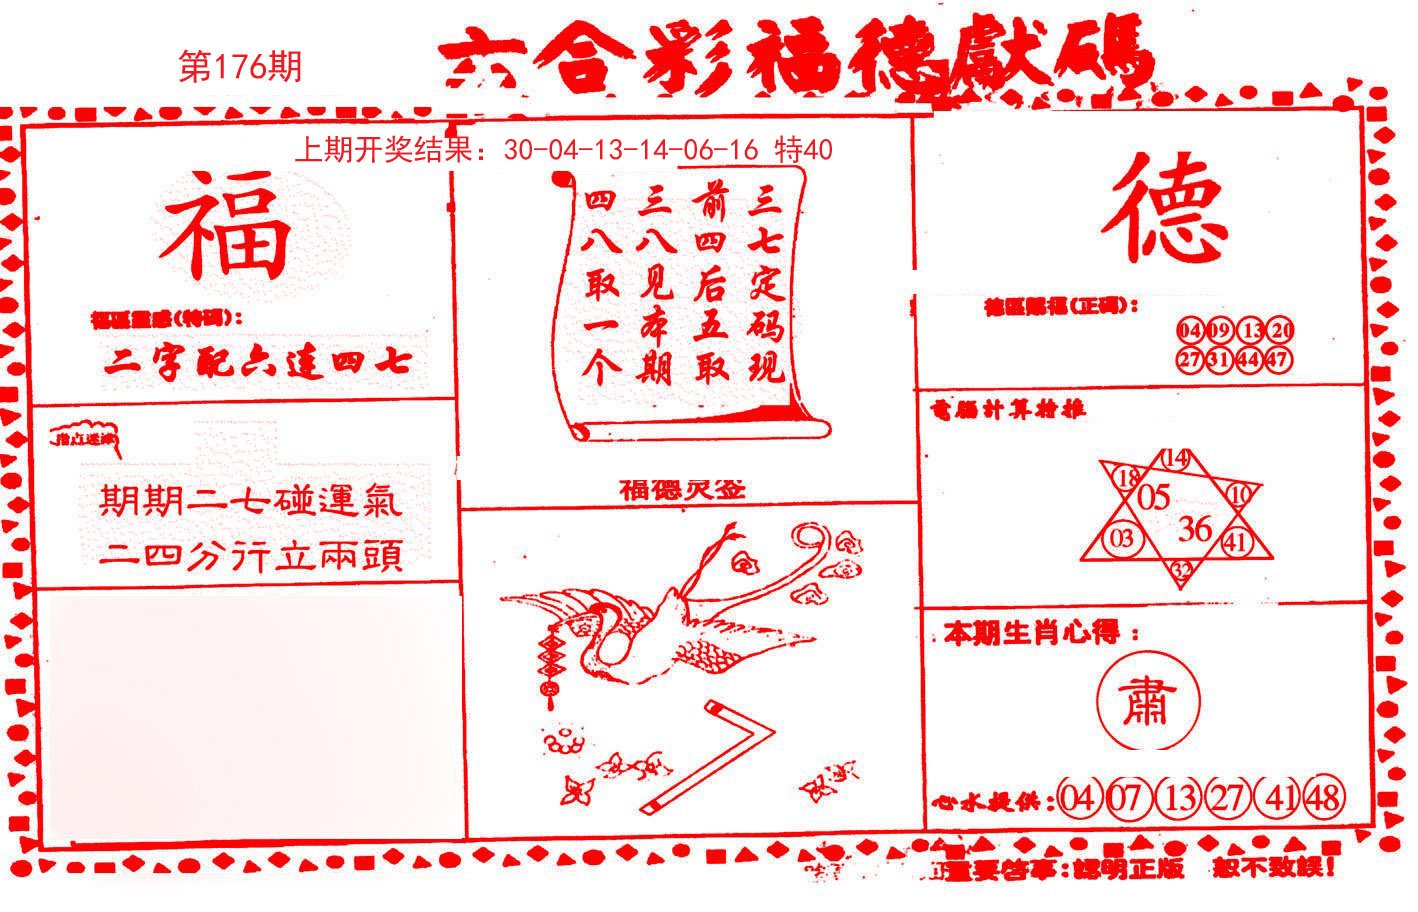 六合彩福德獻碼
第176期
上期开奖结果：30-04-13-14-06-16 特40
福
福區靈感(特碼)：
二字配六連四七
指点迷津
期期二七碰運氣
二四分行立兩頭
三七定码现
前四后五取
三八见本期
四八取一个
福德灵签
德
德區賜福(正碼)：
04 09 13 20
27 31 44 47
電腦計算特推
14
18
10
05
36
03
41
32
本期生肖心得：
肅
心水提供：04 07 13 27 41 48
重要啓事：認明正版 恕不致誤！